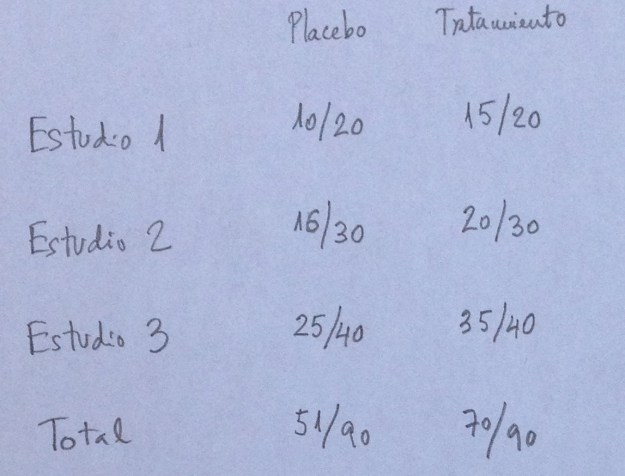 Placebo Tratamiento
Estudio 1 10/20 15/20
Estudio 2 16/30 20/30
Estudio 3 25/40 35/40
Total 51/90 70/90